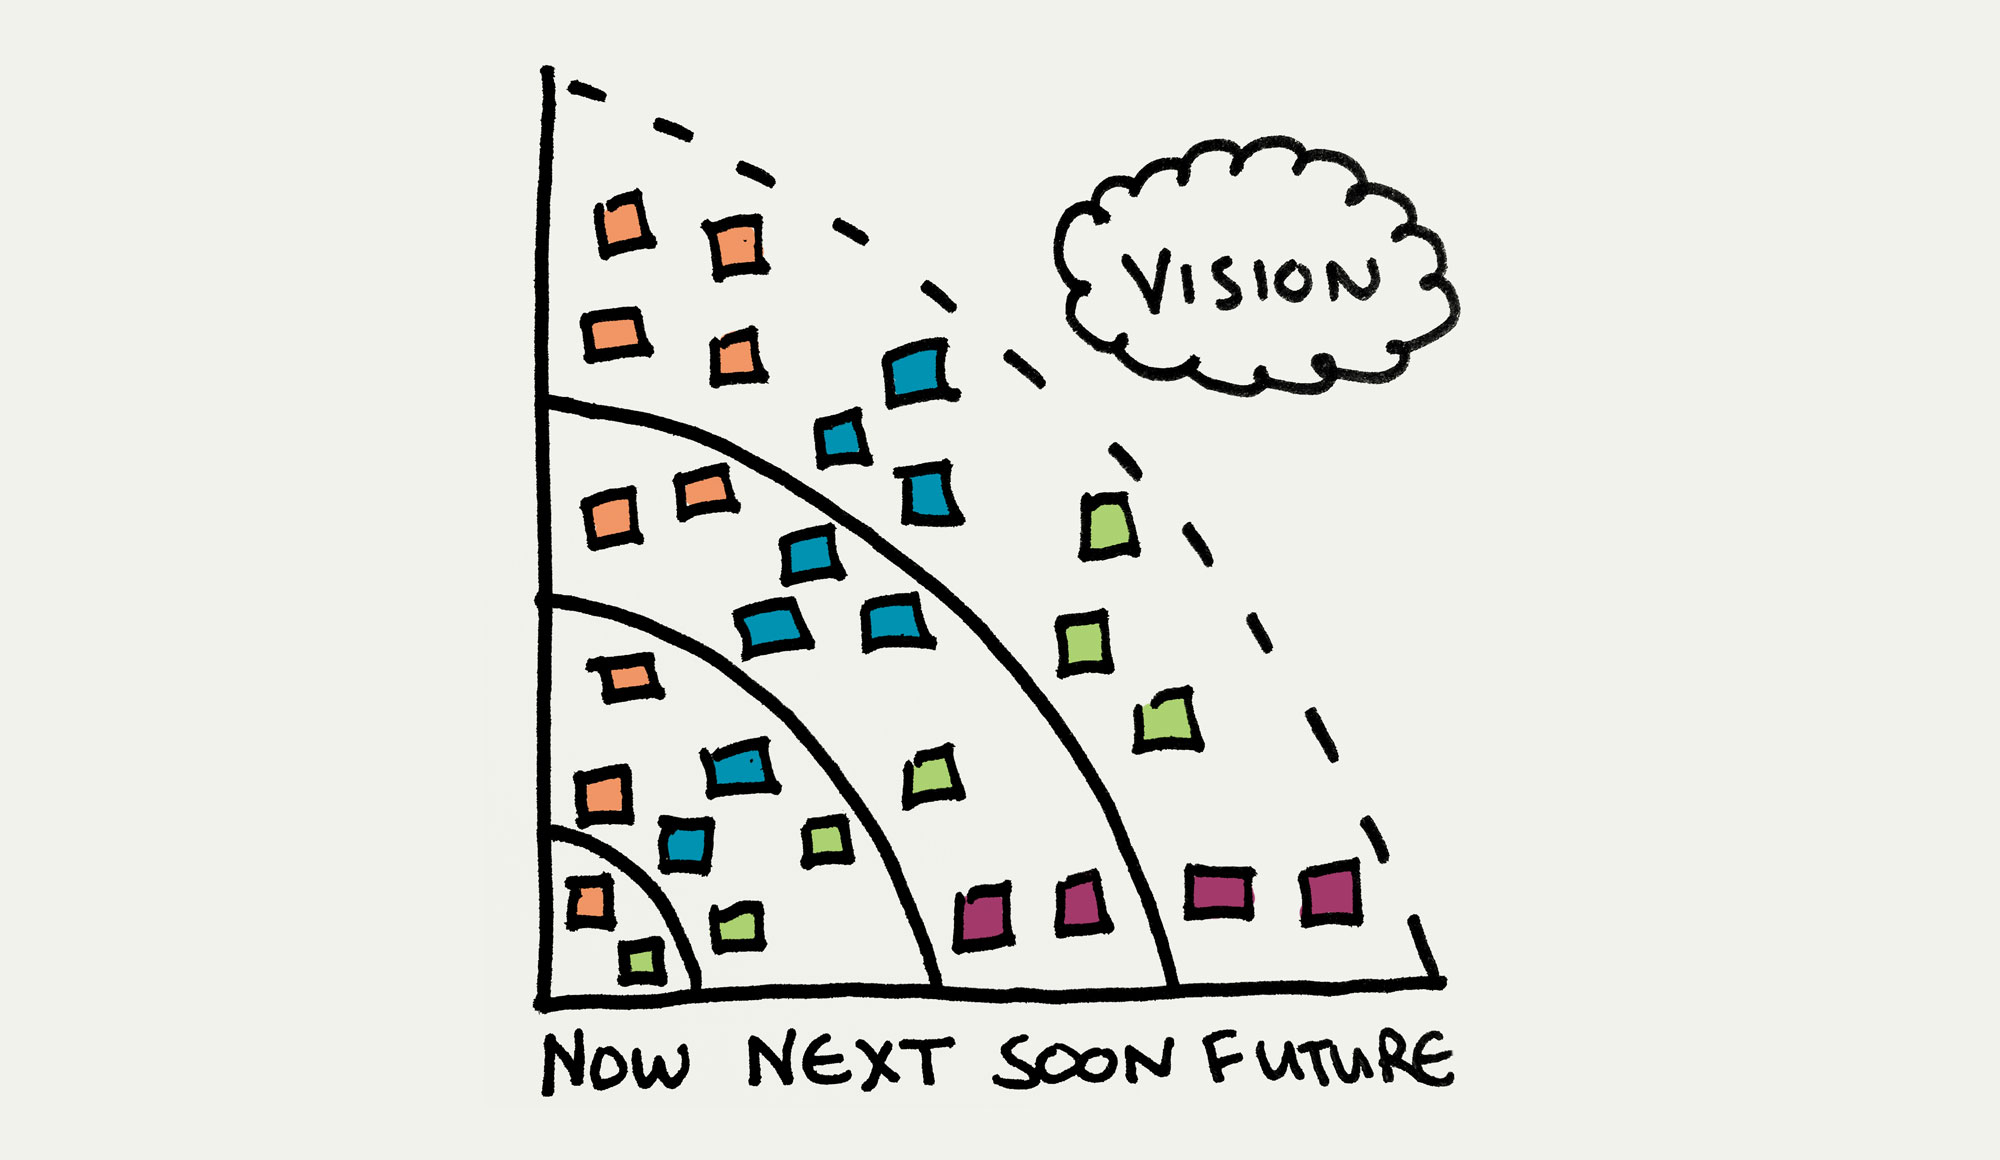 VISION
NOW NEXT SOON FUTURE